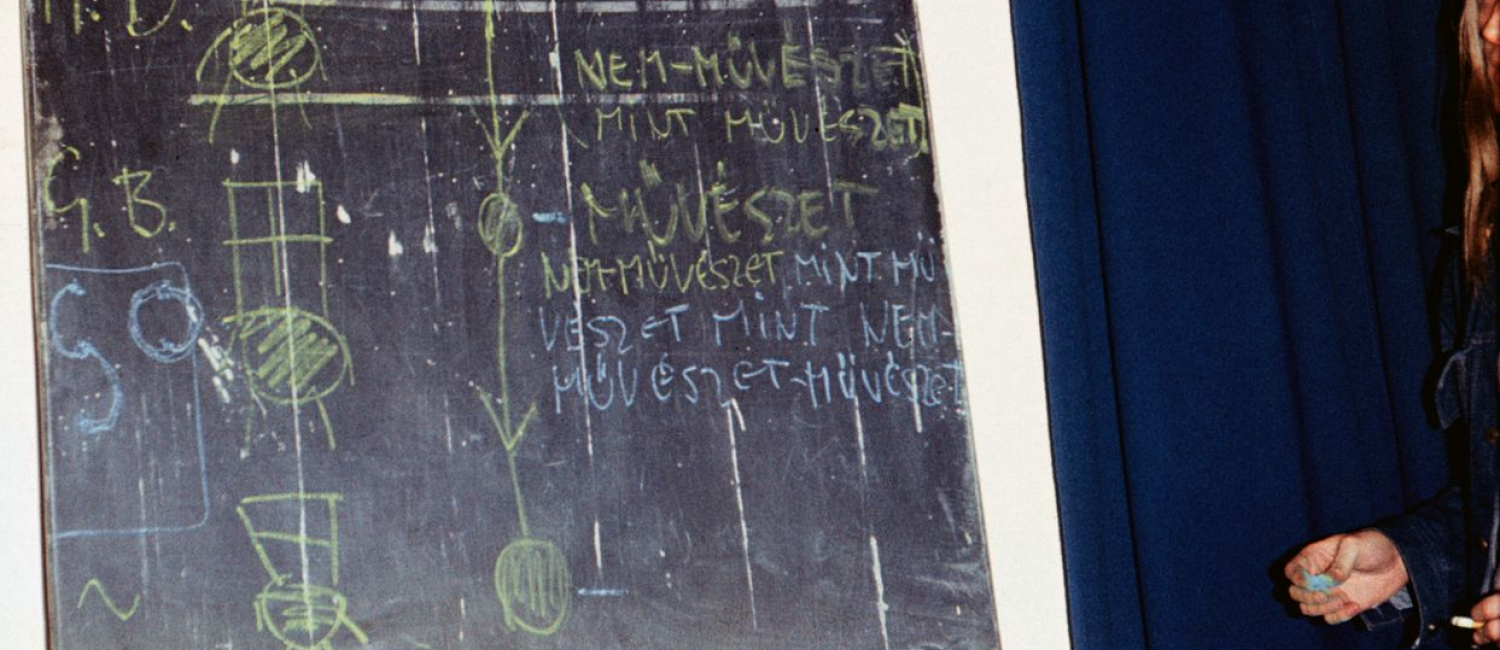 M. D.
NEM-MŰVÉSZET
MINT MŰVÉSZET
G. B.
MŰVÉSZET
NEM-MŰVÉSZET MINT MŰ
VÉSZET MINT NEM-
MŰVÉSZET-MŰVÉSZET